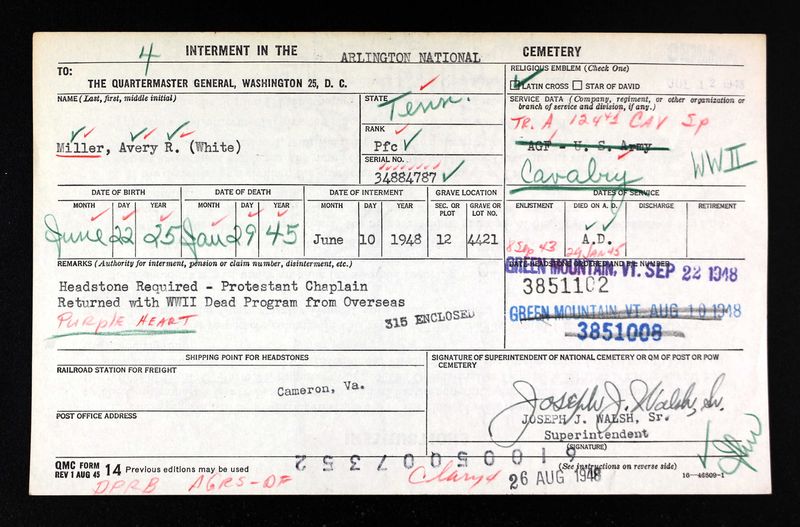 4
INTERMENT IN THE ARLINGTON NATIONAL CEMETERY
TO:
THE QUARTERMASTER GENERAL, WASHINGTON 25, D. C.
RELIGIOUS EMBLEM (Check One)
LATIN CROSS STAR OF DAVID
NAME (Last, first, middle initial)
Miller, Avery R. (White)
STATE
Tenn.
RANK
Pfc
SERIAL NO.
34884787
SERVICE DATA (Company, regiment, or other organization or branch of service and division, if any.)
TR. A, 124th CAV Sp
AGF - U. S. Army
Cavalry
WW II
DATE OF BIRTH
MONTH DAY YEAR
June 22 25
DATE OF DEATH
MONTH DAY YEAR
Jan 29 45
DATE OF INTERMENT
MONTH DAY YEAR
June 10 1948
GRAVE LOCATION
SEC. OR PLOT GRAVE OR LOT NO.
12 4421
DATES OF SERVICE
ENLISTMENT DIED ON A. D. DISCHARGE RETIREMENT
A.D.
8 Sep 43 29 Jan 45
REMARKS (Authority for interment, pension or claim number, disinterment, etc.)
Headstone Required - Protestant Chaplain
Returned with WWII Dead Program from Overseas
PURPLE HEART
315 ENCLOSED
GREEN MOUNTAIN, VT. SEP 22 1948
3851102
GREEN MOUNTAIN, VT. AUG 10 1948
3851008
SHIPPING POINT FOR HEADSTONES
RAILROAD STATION FOR FREIGHT
Cameron, Va.
POST OFFICE ADDRESS
SIGNATURE OF SUPERINTENDENT OF NATIONAL CEMETERY OR QM OF POST OR POW CEMETERY
Joseph J. Walsh, Sr.
JOSEPH J. WALSH, Sr.
Superintendent
(SIGNATURE)
(See instructions on reverse side)
QMC FORM 14 Previous editions may be used
REV 1 AUG 45
16—46809-1
DPRB AGRS-DF
26 AUG 1948